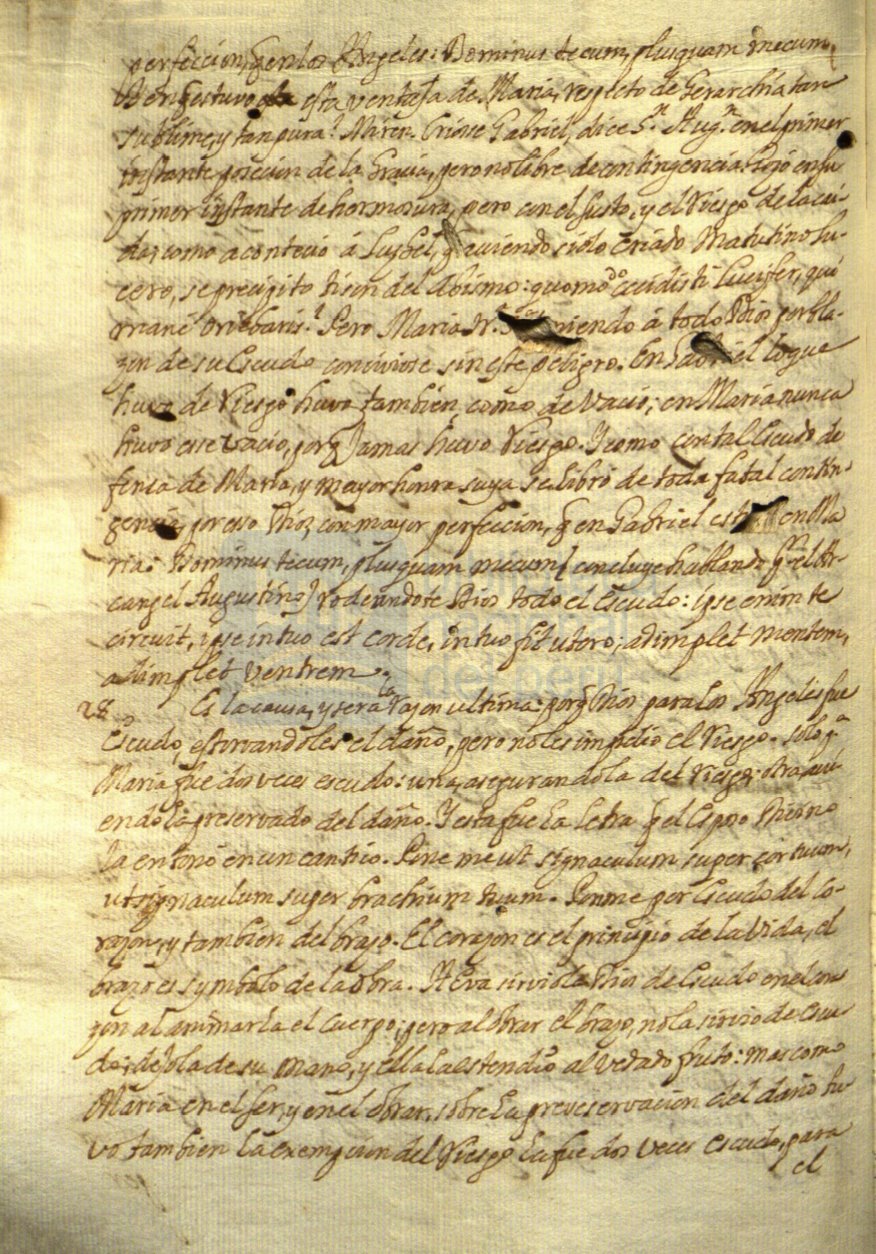 perfeccion, q̃ en los Angeles: Dominus tecum, plusquam mecum,
esta ventaja de Maria, respecto de Gerarchia tan
sublime, y tan pura? Miren. Criose Gabriel, dice S.n Aug.n en el primer
instante posecion de la Gracia, pero no libre de contingencia en su
primer instante de hermosura, pero con el susto, y el riesgo de la cai-
da; como acontecio á Lusbel, q̃ aviendo sido criado Matutino Lu-
cero, se precipito tison del Abismo: quomodo cecidisti Lucifer, qui
mane oriebaris? Pero Maria N. S.ra teniendo á todo Dios por bla-
zon de su Escudo sin este peligro. En Gabriel lo que
huvo de riesgo huvo tambien como de vacio; en Maria nunca
huvo esse vacio, porq̃ Jamas huvo riesgo. Y como con tal Escudo de
fensa de Maria, y mayor honra suya se libró de toda fatal contin-
gencia, por eso Dios con mayor perfeccion, q̃ en Gabriel en Ma
ria: Dominus tecum, plusquam mecum (concluye hablando el Ar-
cangel Augustino) rodeandote Dios todo el Escudo: ipse enim te
circuit, ipse in tuo est corde, in tuo fit utero; adimplet mentem,
adimplet ventrem.
28 Es la causa, y sera la razon ultima: porq̃ Dios para los Angeles fue
Escudo, estorvandoles el daño, pero no les impidio el riesgo. Solo p.a
Maria fue dos veces escudo: una, asegurandola del riesgo; otra avi-
endola preservado del daño. Y esta fue la letra q̃ el Esposo Divino
la entonó en un cantico. Pone me ut signaculum super cor tuum,
ut signaculum super brachium tuum. Ponme por Escudo del co-
razon, y tambien del brazo. El corazon es el principio de la vida, el
brazo es symbolo de la obra. A Eva sirviola Dios de Escudo en el cora
zon al animarla el cuerpo; pero al obrar el brazo, no la sirvio de Escu
do; dejola de su mano, y ella la estendio al vedado fruto: mas como
Maria en el ser, y en el obrar, sobre la preveservacion del daño tu-
vo tambien la exempcion del riesgo la fue dos veces escudo, para
el